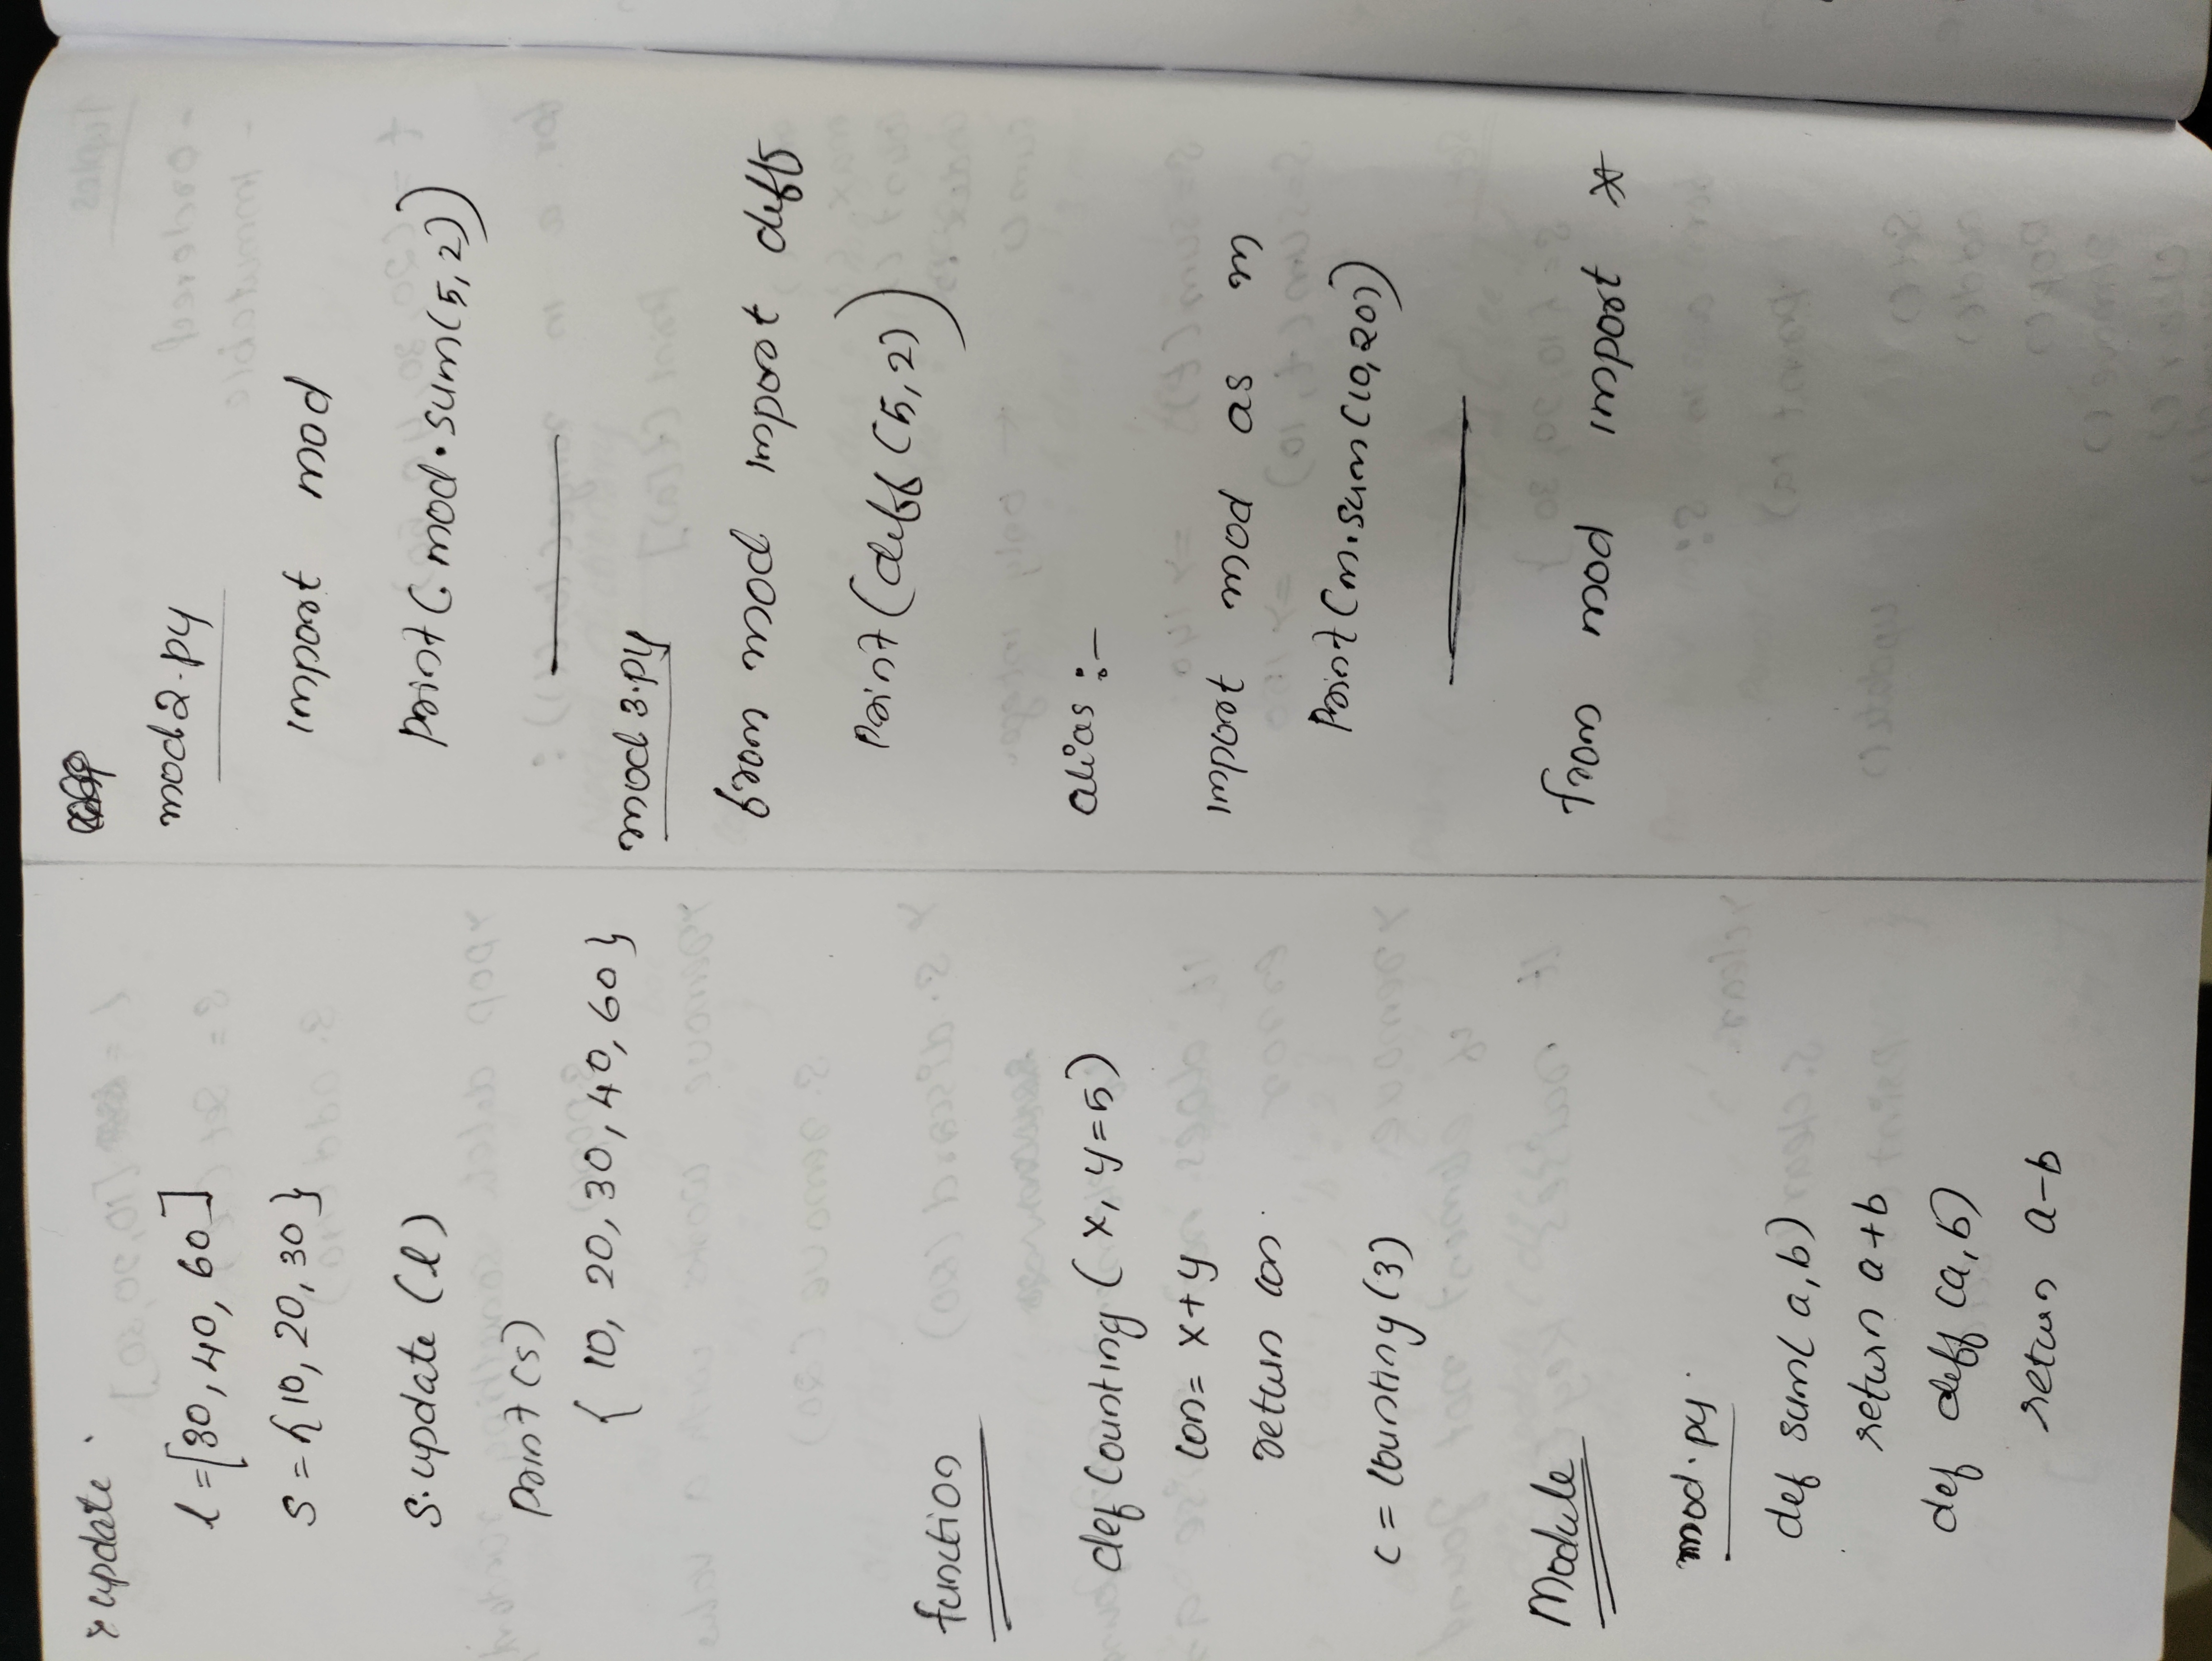 * update
l = [30, 40, 60]
s = {10, 20, 30}
s.update (l)
print (s)
{ 10, 20, 30, 40, 60 }
function
def Counting ( x, y=5)
con = x+y
return con
c = Counting (3)
Module
mod.py
def sum( a, b)
return a+b
def diff (a, b)
return a-b
mod2.py
import mod
print (. mod.sum(5,2))
mod3.py
from mod import diff
print (diff (5,2))
alias :-
import mod as m
print (m.sum (10,20))
from mod import *